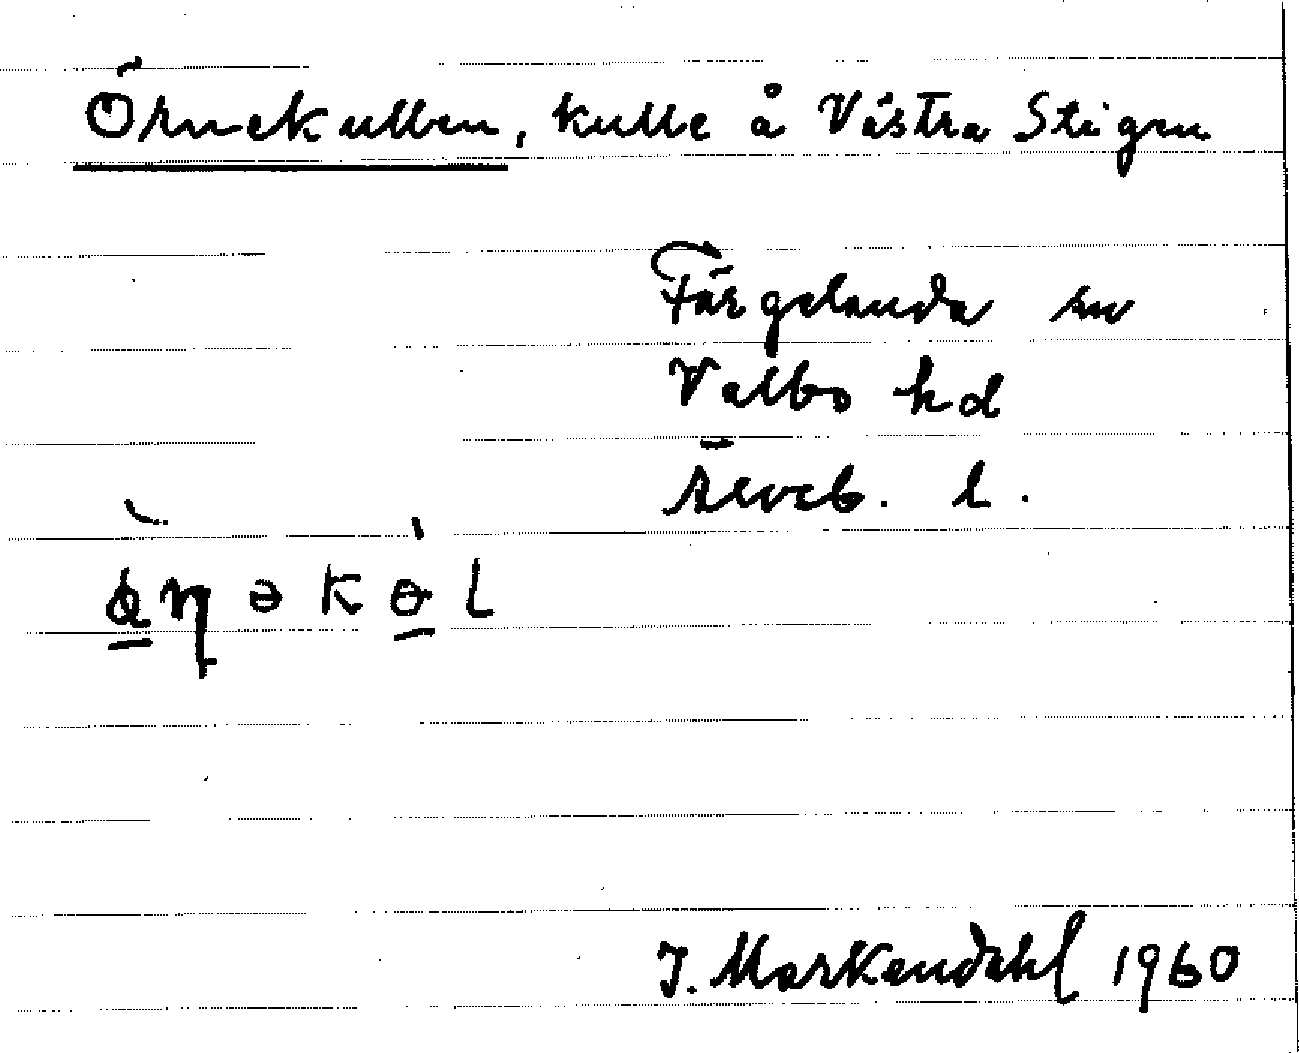 Örnekullen, kulle å Västra Stigen
Färgelanda sn
Valbo hd
Älvsb. l.
J. Markendahl 1960